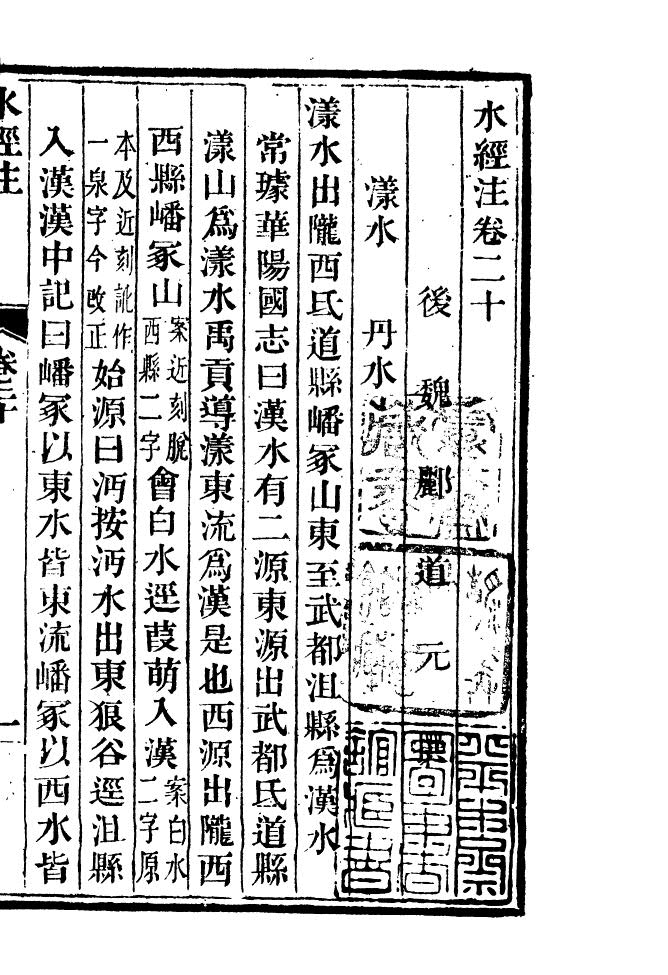 水經注卷二十
後魏酈道元撰
漾水　丹水
漾水出隴西氐道縣嶓冢山東至武都沮縣爲漢水
常璩華陽國志曰漢水有二源東源出武都氐道縣
漾山爲漾水禹貢導漾東流爲漢是也西源出隴西
西縣嶓冢山案近刻脫西縣二字會白水逕葭萌入漢案白水二字原
本及近刻訛作一泉字今改正始源曰沔按沔水出東狼谷逕沮縣
入漢漢中記曰嶓冢以東水皆東流嶓冢以西水皆
水經注
卷二十
一